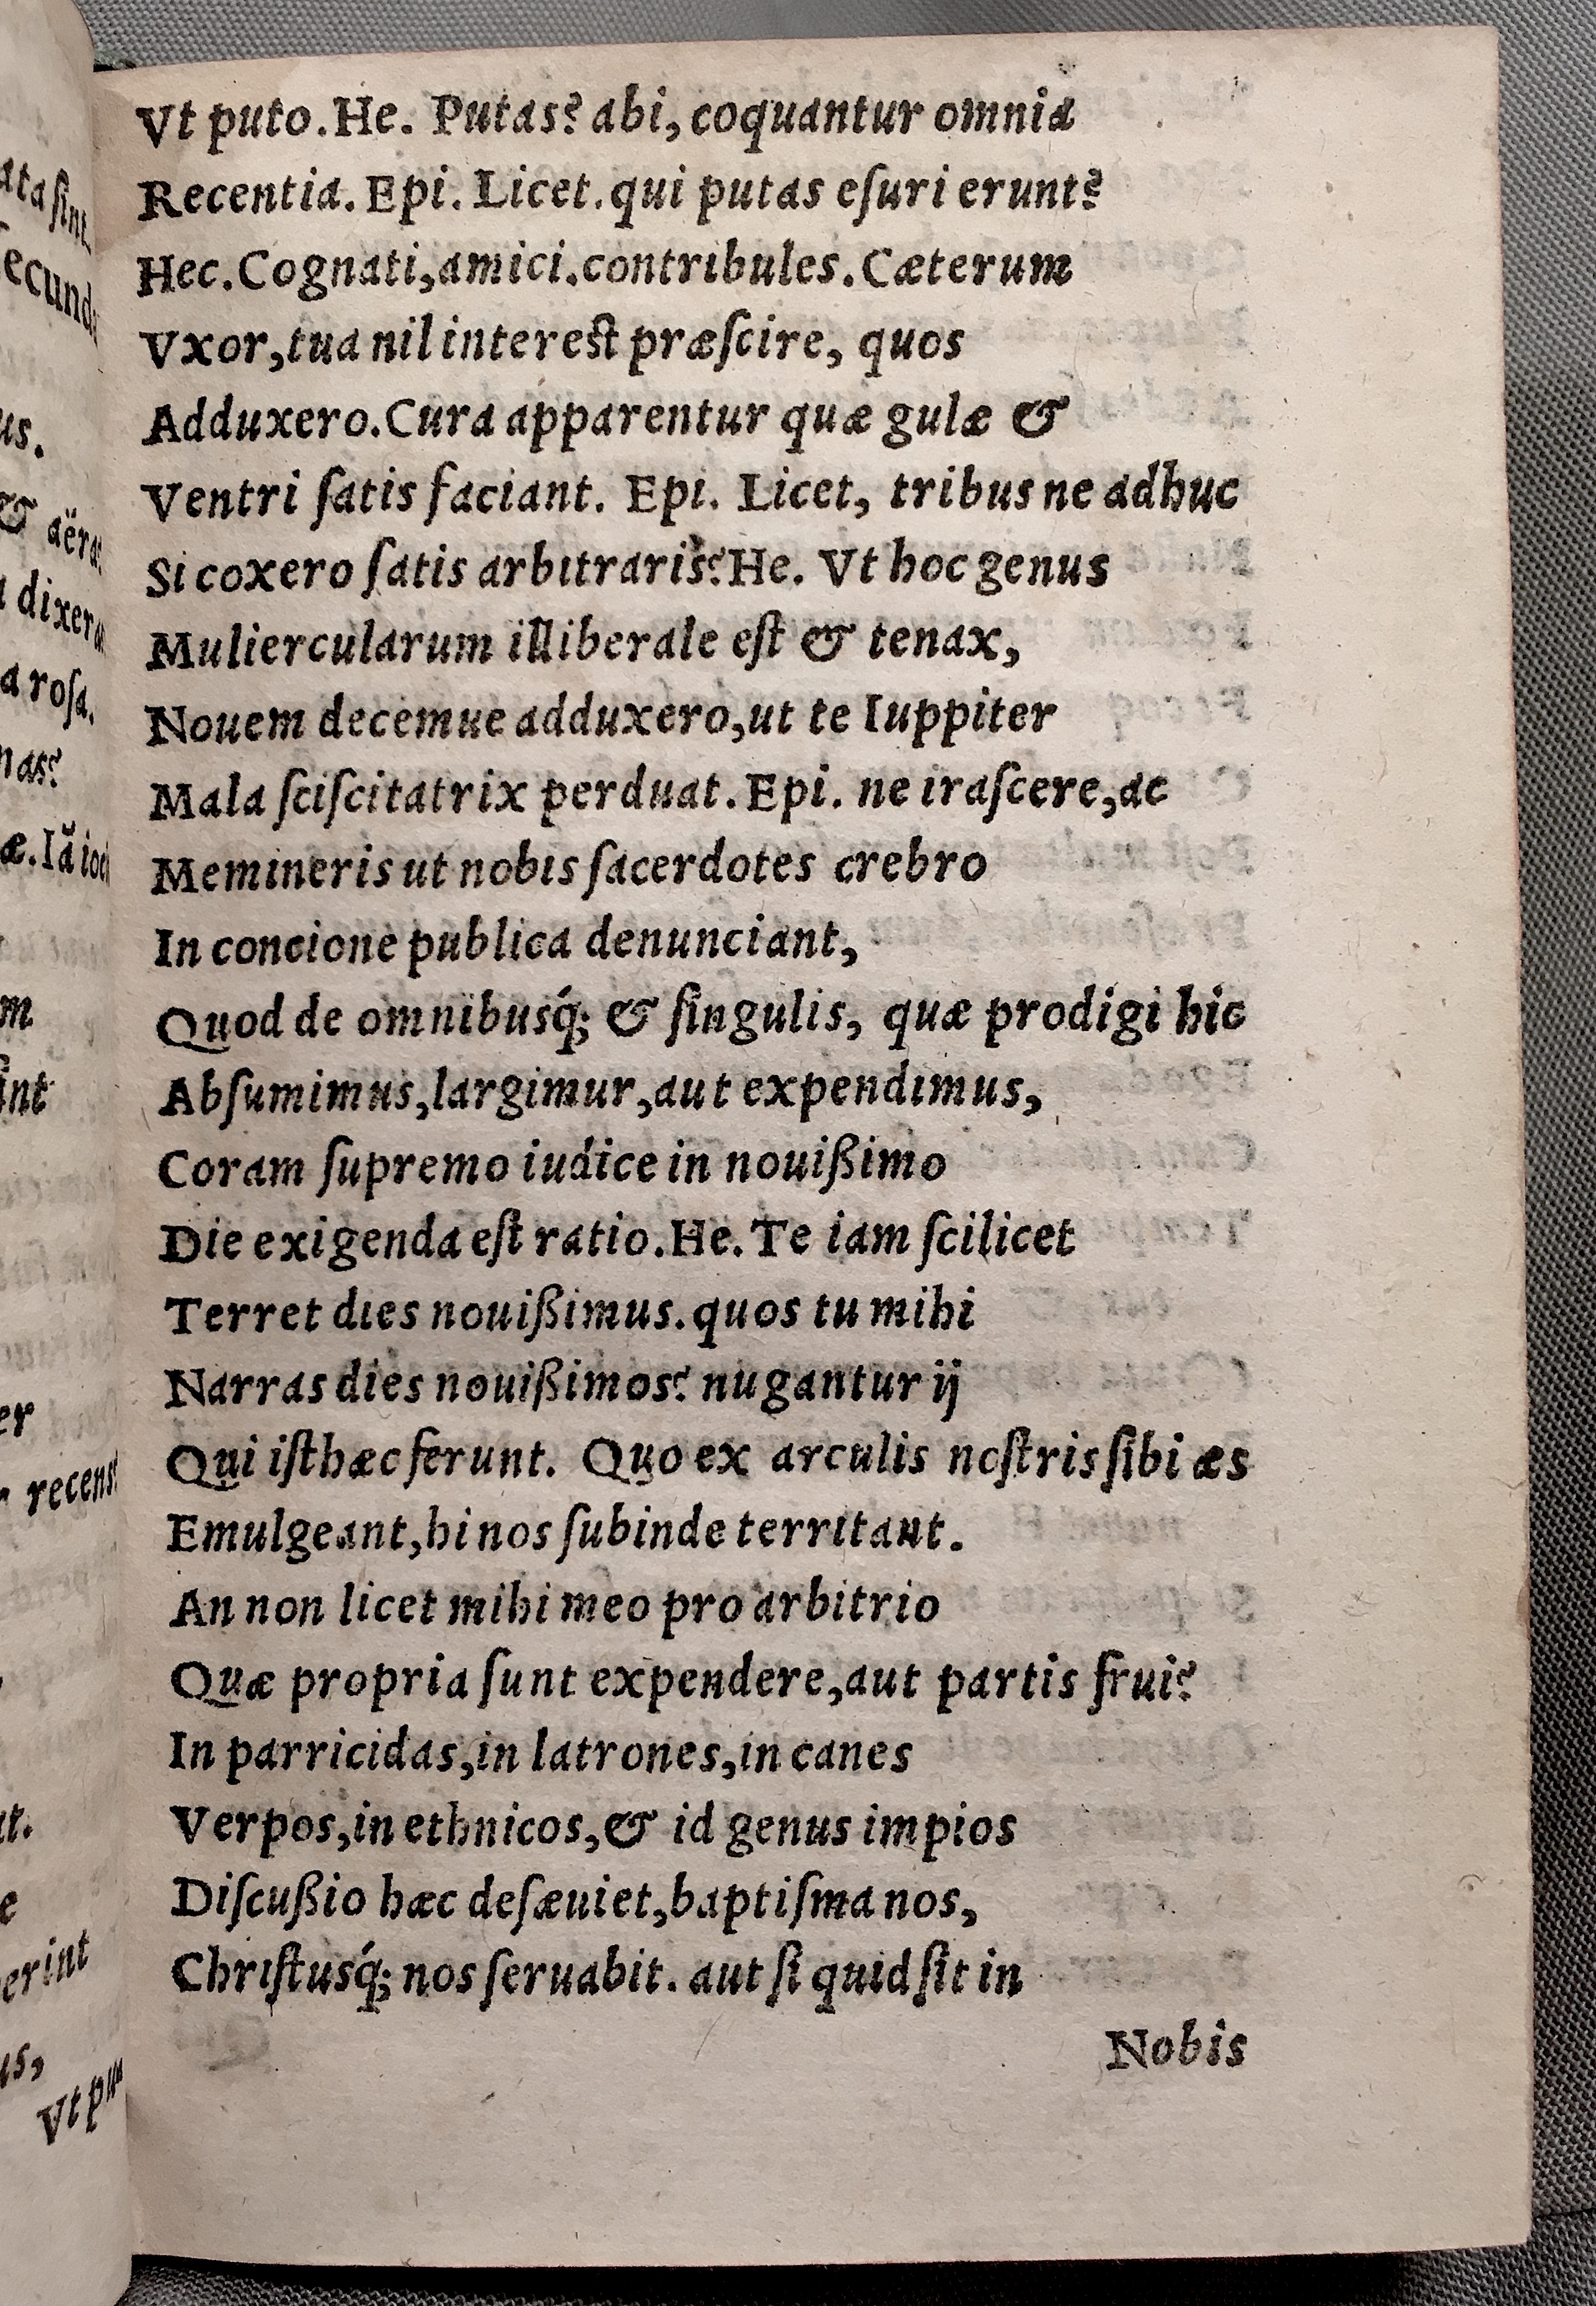 Vt puto. He. Putas? abi, coquantur omnia
Recentia. Epi. Licet. qui putas eſuri erunt?
Hec. Cognati, amici. contribules. Cæterum
Vxor, tua nil intereſt præſcire, quos
Adduxero. Cura apparentur quæ gulæ &
Ventri ſatis faciant. Epi. Licet, tribus ne adhuc
Si coxero ſatis arbitraris? He. Vt hoc genus
Muliercularum illiberale eſt & tenax,
Nouem decemue adduxero, ut te Iuppiter
Mala ſciſcitatrix perduat. Epi. ne iraſcere, ac
Memineris ut nobis ſacerdotes crebro
In concione publica denunciant,
Quod de omnibusq́; & ſingulis, quæ prodigi hic
Abſumimus, largimur, aut expendimus,
Coram ſupremo iudice in nouißimo
Die exigenda eſt ratio. He. Te iam ſcilicet
Terret dies nouißimus. quos tu mihi
Narras dies nouißimos? nugantur ij
Qui iſthæc ferunt. Quo ex arculis noſtris ſibi æs
Emulgeant, hi nos ſubinde territant.
An non licet mihi meo pro arbitrio
Quæ propria ſunt expendere, aut partis frui?
In parricidas, in latrones, in canes
Verpos, in ethnicos, & id genus impios
Diſcußio hæc deſæuiet, baptiſma nos,
Chriſtusq́; nos ſeruabit. aut ſi quid ſit in
Nobis